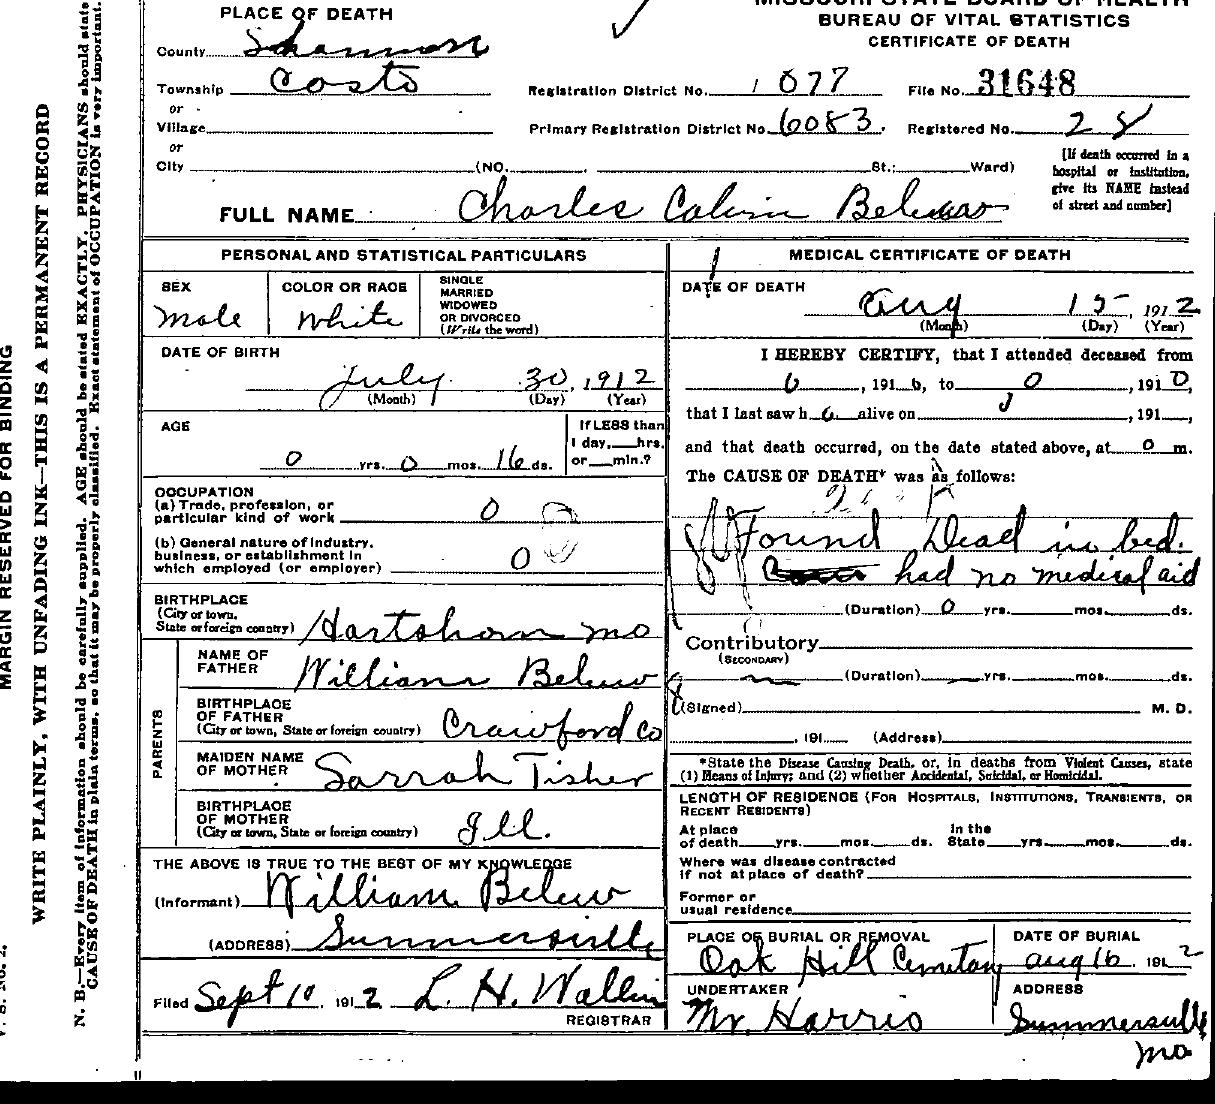 PLACE OF DEATH
MISSOURI STATE BOARD OF HEALTH
BUREAU OF VITAL STATISTICS
CERTIFICATE OF DEATH
County Shannon
Township
or
Village
or
City (NO. St.; Ward)
Registration District No. 1077 File No. 31648
Primary Registration District No. 6083. Registered No. 28
[If death occurred in a
hospital or institution,
give its NAME instead
of street and number]
FULL NAME Charles Calvin
PERSONAL AND STATISTICAL PARTICULARS
SEX
Male
COLOR OR RACE
White
SINGLE
MARRIED
WIDOWED
OR DIVORCED
(Write the word)
DATE OF BIRTH
July 30, 1912
(Month) (Day) (Year)
AGE
0 yrs. 0 mos. 16 ds.
If LESS than
1 day, hrs.
or min.?
OCCUPATION
(a) Trade, profession, or
particular kind of work 0
(b) General nature of industry,
business, or establishment in
which employed (or employer) 0
BIRTHPLACE
(City or town,
State or foreign country) Hartshorn Mo
PARENTS
NAME OF
FATHER William Belew
BIRTHPLACE
OF FATHER
(City or town, State or foreign country) Crawford Co
MAIDEN NAME
OF MOTHER Sarrah Tisher
BIRTHPLACE
OF MOTHER
(City or town, State or foreign country) Ill.
THE ABOVE IS TRUE TO THE BEST OF MY KNOWLEDGE
(Informant) William Belew
(ADDRESS) Summersville
Filed Sept 10, 1912 L. H. Wallin
REGISTRAR
MEDICAL CERTIFICATE OF DEATH
DATE OF DEATH
Aug 15, 1912
(Month) (Day) (Year)
I HEREBY CERTIFY, that I attended deceased from
, 191 , to 0 , 1910,
that I last saw h alive on , 191 ,
and that death occurred, on the date stated above, at 0 m.
The CAUSE OF DEATH* was as follows:
Found Dead in bed.
had no medical aid
(Duration) 0 yrs. mos. ds.
Contributory
(SECONDARY)
(Duration) yrs. mos. ds.
(Signed) M. D.
, 191 (Address)
*State the Disease Causing Death, or, in deaths from Violent Causes, state
(1) Means of Injury; and (2) whether Accidental, Suicidal, or Homicidal.
LENGTH OF RESIDENCE (FOR HOSPITALS, INSTITUTIONS, TRANSIENTS, OR
RECENT RESIDENTS)
At place In the
of death yrs. mos. ds. State yrs. mos. ds.
Where was disease contracted
if not at place of death?
Former or
usual residence
PLACE OF BURIAL OR REMOVAL
Oak Hill Cemetary
DATE OF BURIAL
Aug 16, 1912
UNDERTAKER
Mr Harris
ADDRESS
Summersville
Mo
MARGIN RESERVED FOR BINDING
WRITE PLAINLY, WITH UNFADING INK—THIS IS A PERMANENT RECORD
N. B.—Every item of information should be carefully supplied. AGE should be stated EXACTLY. PHYSICIANS should state
CAUSE OF DEATH in plain terms, so that it may be properly classified. Exact statement of OCCUPATION is very important.
V. S. No. 2.